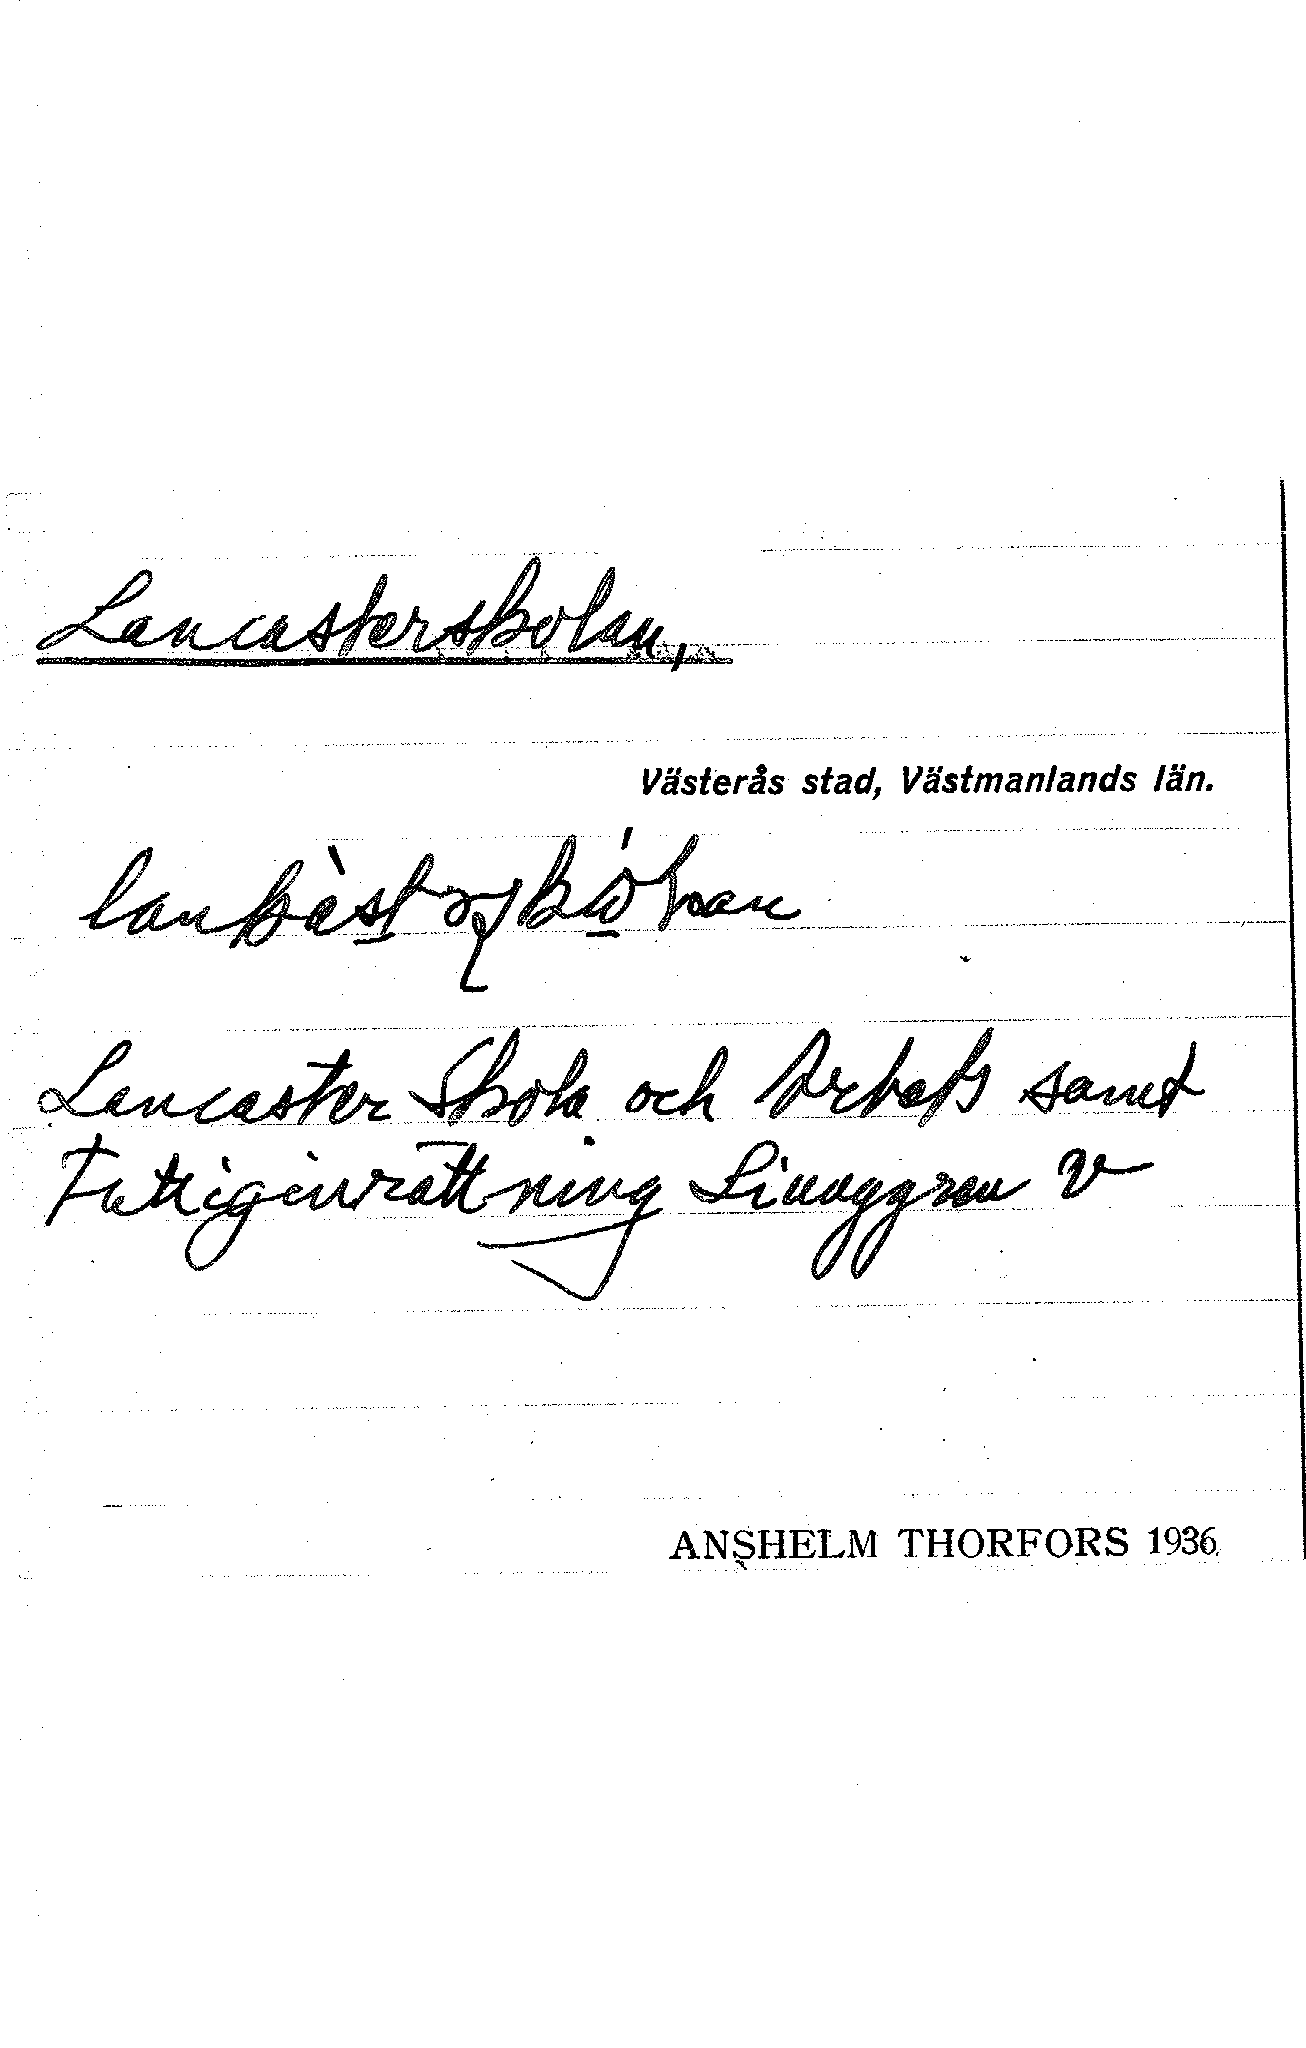 Lancasterskolan,
Västerås stad, Västmanlands län.
Lancaster Skola och Arbets samt
Fattiginrättning Linnggren V
ANSHELM THORFORS 1936.